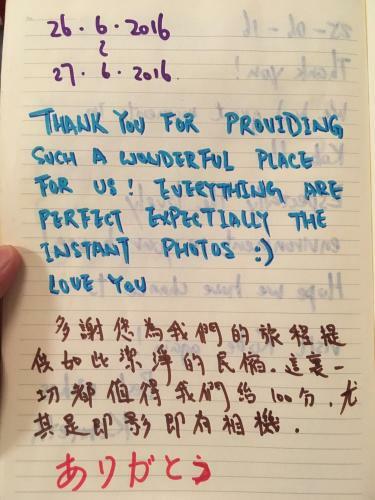 26・6・2016
~
27・6・2016
THANK YOU FOR PROVIDING
SUCH A WONDERFUL PLACE
FOR US! EVERYTHING ARE
PERFECT EXPECTIALLY THE
INSTANT PHOTOS :)
LOVE YOU
多謝您為我們的旅程提
供如此潔淨的民宿.這裏一
切都值得我們給100分,尤
其是即影即有相機.
ありがとう